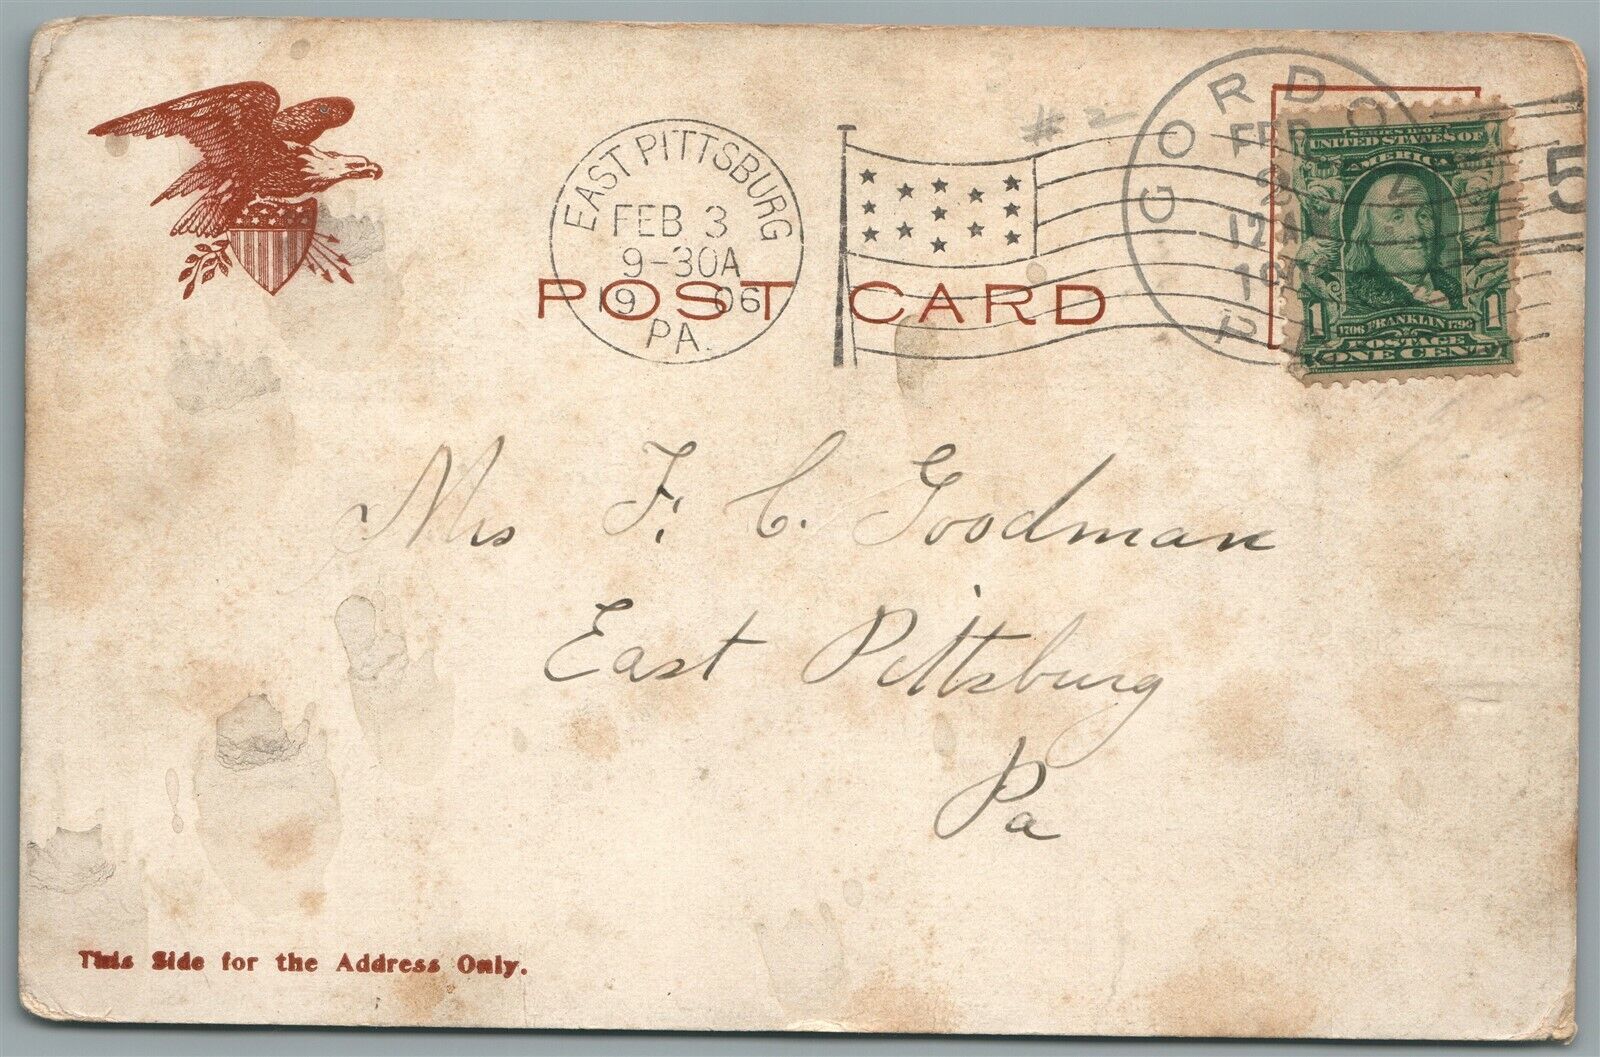 EAST PITTSBURG
FEB 3
9-30A
19 06
PA.
#2
GORDON
FEB
2
12
P
5
SERIES 1902
UNITED STATES OF
AMERICA
1 1
1706 FRANKLIN 1790
POSTAGE
ONE CENT
POST CARD
Mrs F. C. Goodman
East Pittsburg
Pa
This Side for the Address Only.